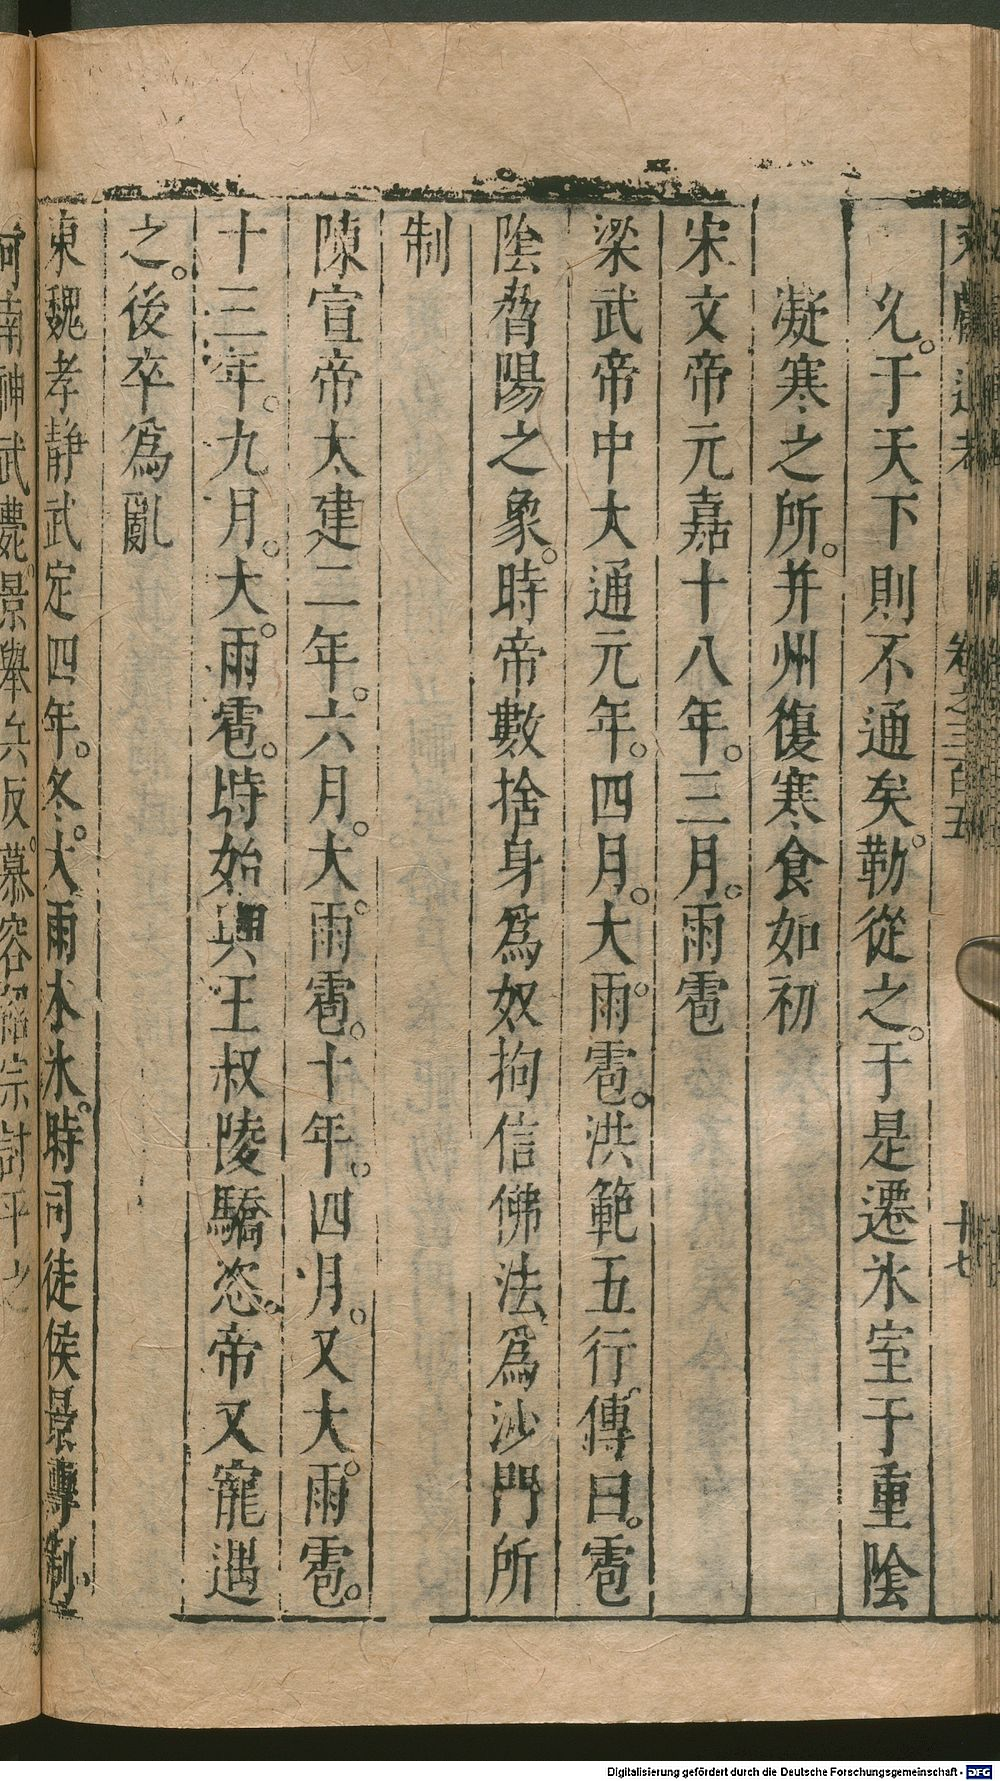 文獻通考 卷之三百五 十七
允。于天下則不通矣。勒從之。于是遷氷室于重陰
凝寒之所。并州復寒食如初
宋文帝元嘉十八年。三月。雨雹
梁武帝中大通元年。四月。大雨雹。洪範五行傳曰。雹
陰脅陽之象。時帝數捨身爲奴拘信佛法爲沙門所
制
陳宣帝太建二年。六月。大雨雹。十年。四月。又大雨雹。
十三年。九月。大雨雹。時始興王叔陵驕恣。帝又寵遇
之。後卒爲亂
東魏孝靜武定四年。冬。大雨木氷。時司徒侯景專制
河南神武斃。景舉兵反。慕容紹宗討平之
Digitalisierung gefördert durch die Deutsche Forschungsgemeinschaft - DFG